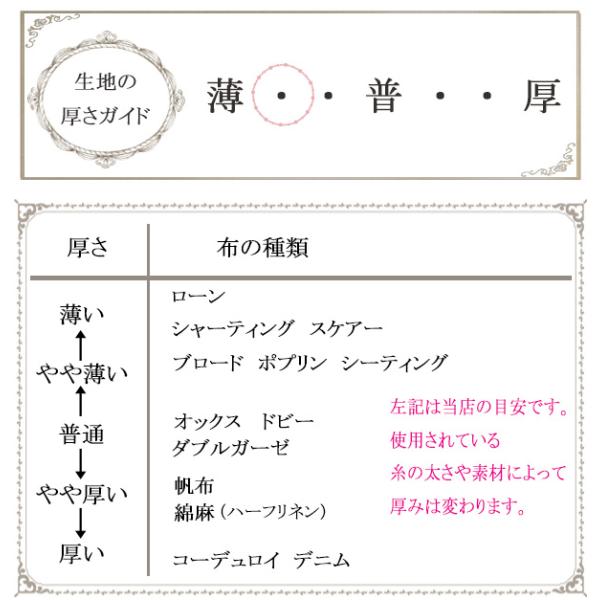 生地の
厚さガイド
薄・・普・・厚
厚さ 布の種類
薄い
ローン
シャーティング スケアー
やや薄い
ブロード ポプリン シーティング
普通
オックス ドビー
ダブルガーゼ
やや厚い
帆布
綿麻（ハーフリネン）
厚い
コーデュロイ デニム
左記は当店の目安です。
使用されている
糸の太さや素材によって
厚みは変わります。